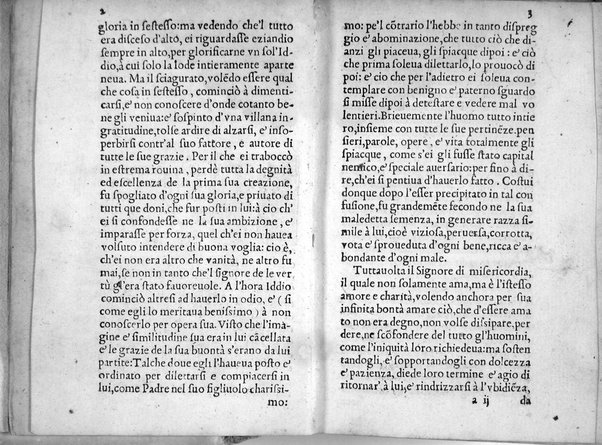 2
gloria in ſesteſſo: ma vedendo che'l tutto
era diſceso d'alto, ei riguardaſſe eziandio
sempre in alto, per glorificarne vn sol'Id-
dio, à cui solo la lode intieramente aparte
neua. Ma il sciagurato, volẽdo eſſere qual
che coſa in ſesteſſo, cominciò à dimenti-
carſi, e' non conoſcere d'onde cotanto be-
ne gli veniua: e' soſpinto d'vna villana in-
gratitudine, tolſe ardire di alzarſi, e' inſo-
perbirſi contr'al suo fattore, e autore di
tutte le sue grazie. Per il che ei traboccò
in estrema rouina, perdè tutta la degnità
ed eſcellenza de la prima sua creazione,
fu ſpogliato d'ogni sua gloria, e priuato di
tutti que doni, che fur posti in lui: à cio ch'
ei si confondeſſe ne la sua ambizione, e'
imparaſſe per forza, quel ch'ei non hauea
volſuto intendere di buona voglia: cio è,
ch'ei non era altro che vanità, ne altro fu
mai, se non in tanto che'l signore de le ver
tù gl'era stato fauoreuole. A l'hora Iddio
cominciò altreſi ad hauerlo in odio, e' (si
come egli lo meritaua beniſſimo) à non
conoſcerlo per opera sua. Visto che l'ima-
gine e' similitudine sua era in lui cãcellata
e' le grazie de la sua buontà s'erano da lui
partite: Talche doue egli l'haueua posto e'
ordinato per dilettarsi e compiacerſi in
lui, come Padre nel suo figliuolo chariſſi-
mo:
3
mo: pe'l cõtrario l'hebbe in tanto diſpreg
gio e' abominazione, che tutto ciò che di-
anzi gli piaceua, gli ſpiacque dipoi: e' ciò
che prima soleua dilettarlo, lo prouocò di
poi: e' cio che per l'adietro ei soleua con-
templare con benigno e' paterno sguardo
si miſſe dipoi à detestare e vedere mal vo
lentieri. Brieuemente l'huomo tutto intie
ro, inſieme con tutte le sue pertinẽze, pen
sieri, parole, opere, e' vita totalmente gli
ſpiacque, come s'ei gli fuſſe stato capital
nemico, e' ſpeciale auerſario: per fino à di-
re, ch'ei si pentiua d'hauerlo fatto. Costui
donque dopo l'eſſer precipitato in tal con
fuſione, fu grandemẽte fecondo ne la sua
maledetta semenza, in generare razza si-
mile à lui, cioè vizioſa, peruerſa, corrotta,
vota e' sproueduta d'ogni bene, ricca e' a-
bondante d'ogni male.
Tuttauolta il Signore di miſericordia,
il quale non solamente ama, ma è l'isteſſo
amore e charità, volendo anchora per sua
infinita bontà amare ciò, che d'eſſere ama
to non era degno, non volſe diſſipare, per
dere, ne sconfondere del tutto gl'huomini,
come l'iniquità loro richiedeua: ma soſten
tandogli, e' sopportandogli con dolcezza
e' pazienza, diede loro termine e' agio di
ritornar' à lui, e' rindrizzarſi à l'vbidiẽza,
a ij da